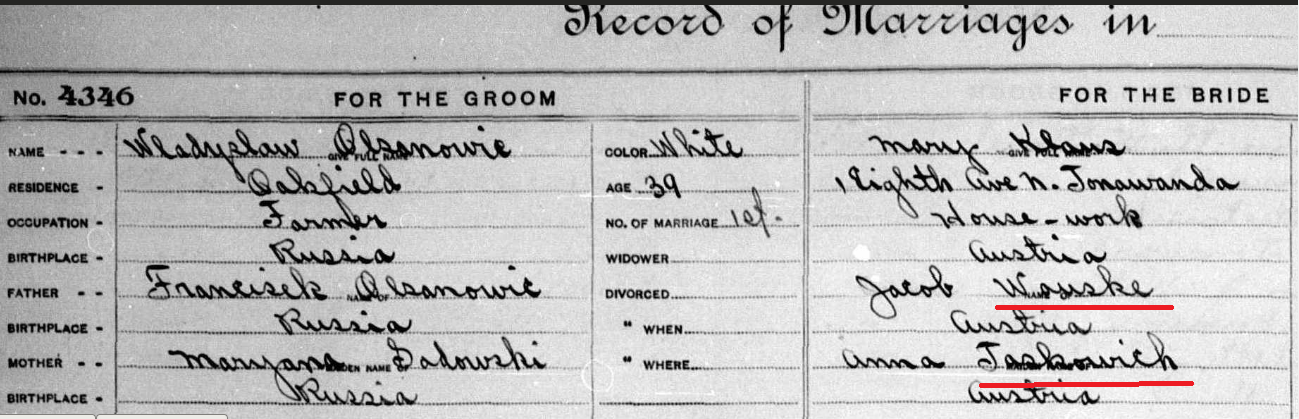 Record of Marriages in
No. 4346 FOR THE GROOM FOR THE BRIDE
NAME - - - Wladyslaw Olsanowic GIVE FULL NAME COLOR White Mary Klaus GIVE FULL NAME
RESIDENCE - Oakfield AGE 39 1 Eighth Ave N. Tonawanda
OCCUPATION - Farmer NO. OF MARRIAGE 1st. House-work
BIRTHPLACE - Russia WIDOWER Austria
FATHER - - Francisek Olsanowic DIVORCED Jacob Wauske
BIRTHPLACE - Russia " WHEN Austria
MOTHER - - Maryana MAIDEN NAME Sadowski " WHERE Anna Taskowich
BIRTHPLACE - Russia Austria